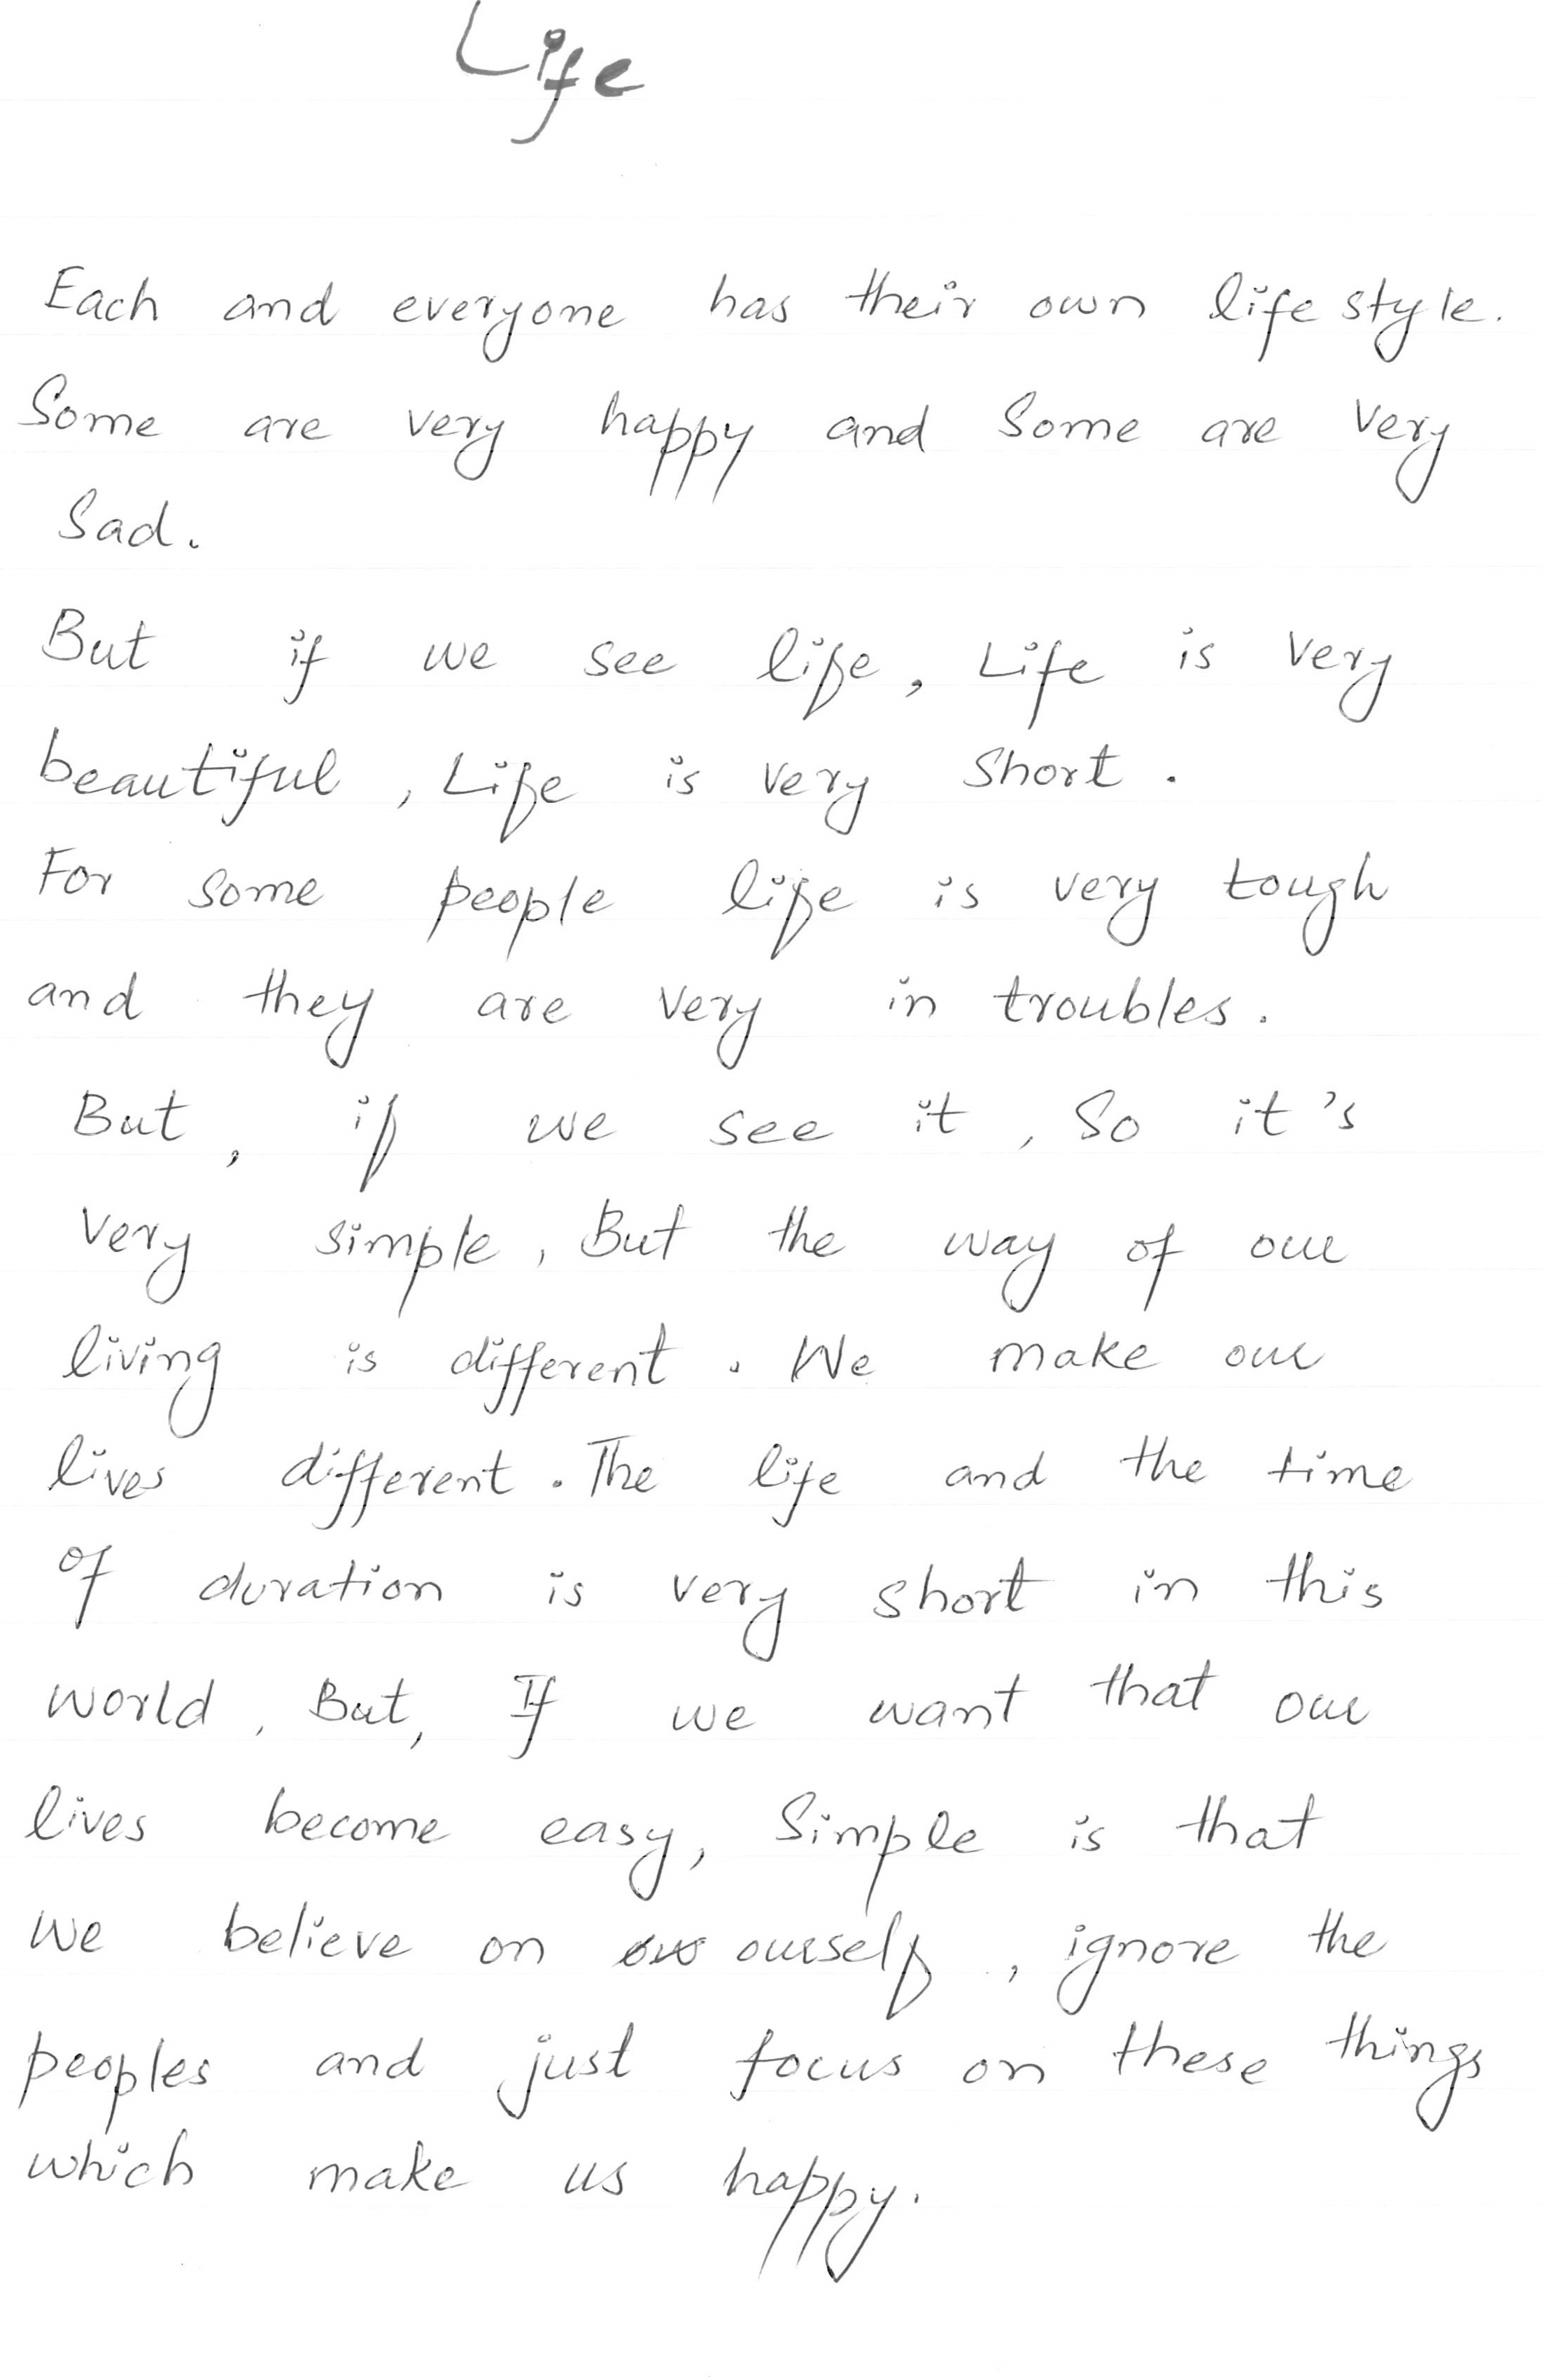 Life
Each and everyone has their own life style.
Some are very happy and Some are very
Sad.
But if we see life, Life is very
beautiful, Life is very Short.
For some people life is very tough
and they are very in troubles.
But, if we see it, So it's
very simple, But the way of our
living is different. We make our
lives different. The life and the time
of duration is very short in this
world. But, If we want that our
lives become easy, Simple is that
We believe on ourself, ignore the
peoples and just focus on these things
which make us happy.